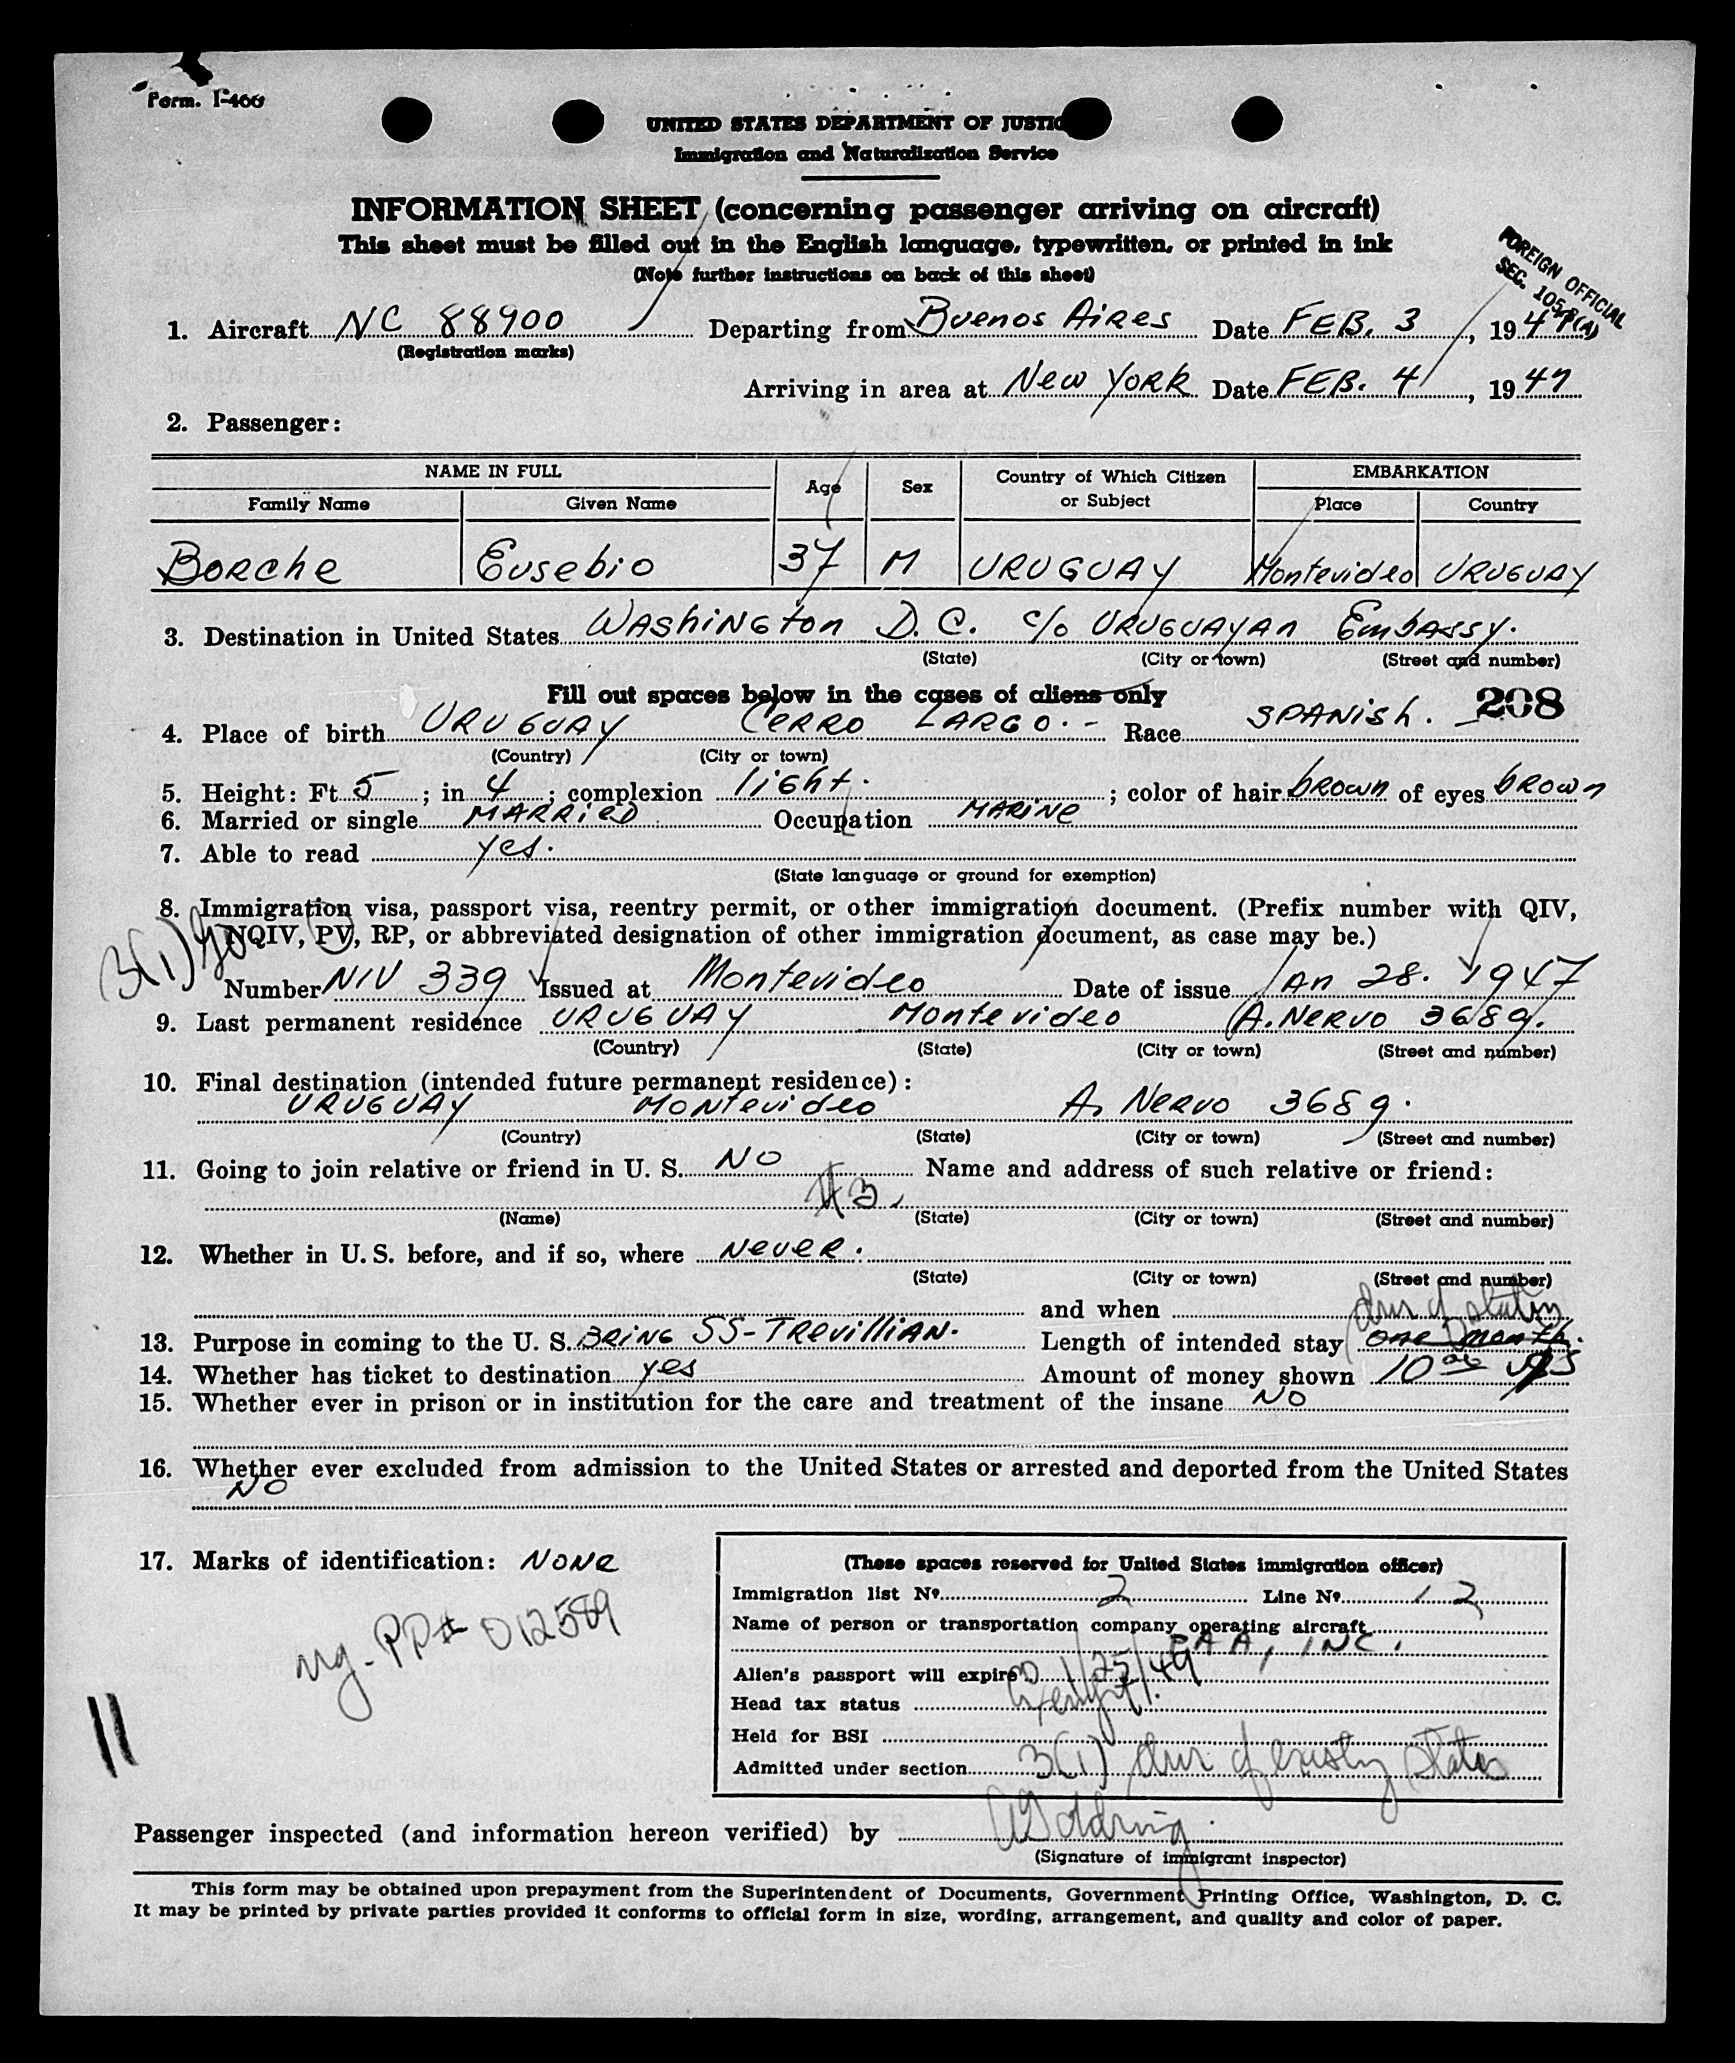 Form. I-466
UNITED STATES DEPARTMENT OF JUSTIC
Immigration and Naturalization Service
INFORMATION SHEET (concerning passenger arriving on aircraft)
This sheet must be filled out in the English language, typewritten, or printed in ink
(Note further instructions on back of this sheet)
FOREIGN OFFICIAL
SEC.
1. Aircraft NC 88900 Departing from Buenos Aires Date FEB. 3, 1947
(Registration marks)
Arriving in area at New York Date FEB. 4, 1947
2. Passenger:
NAME IN FULL Age Sex Country of Which Citizen or Subject EMBARKATION
Family Name Given Name Place Country
Borche Eusebio 37 M URUGUAY Montevideo URUGUAY
3. Destination in United States Washington D.C. c/o URUGUAYAn Embassy.
(State) (City or town) (Street and number)
Fill out spaces below in the cases of aliens only
208
4. Place of birth URUGUAY CERRO LARGO.- Race SPANish.
(Country) (City or town)
5. Height: Ft. 5; in. 4; complexion light.; color of hair brown of eyes brown
6. Married or single MARRIED Occupation MARINE
7. Able to read yes.
(State language or ground for exemption)
8. Immigration visa, passport visa, reentry permit, or other immigration document. (Prefix number with QIV,
NQIV, PV, RP, or abbreviated designation of other immigration document, as case may be.)
3(1)
Number NIV 339 Issued at Montevideo Date of issue Jan 28. 1947
9. Last permanent residence URUGUAY Montevideo A. Nervo 3689.
(Country) (State) (City or town) (Street and number)
10. Final destination (intended future permanent residence):
URUGUAY Montevideo A. Nervo 3689.
(Country) (State) (City or town) (Street and number)
11. Going to join relative or friend in U. S. NO Name and address of such relative or friend:
(Name) (State) (City or town) (Street and number)
12. Whether in U. S. before, and if so, where Never.
(State) (City or town) (Street and number)
and when
dur of status
13. Purpose in coming to the U. S. Bring SS-Trevillian. Length of intended stay one month.
14. Whether has ticket to destination yes Amount of money shown 10 00 U$S
15. Whether ever in prison or in institution for the care and treatment of the insane NO
16. Whether ever excluded from admission to the United States or arrested and deported from the United States
NO
17. Marks of identification: None
PP# 012589
11
(These spaces reserved for United States immigration officer)
Immigration list No. 2 Line No. 12
Name of person or transportation company operating aircraft
PAA, INC.
Alien's passport will expire 1/25/49
Head tax status Exempt
Held for BSI
Admitted under section 3(1) dur of existg status
Passenger inspected (and information hereon verified) by
(Signature of immigrant inspector)
This form may be obtained upon prepayment from the Superintendent of Documents, Government Printing Office, Washington, D. C.
It may be printed by private parties provided it conforms to official form in size, wording, arrangement, and quality and color of paper.